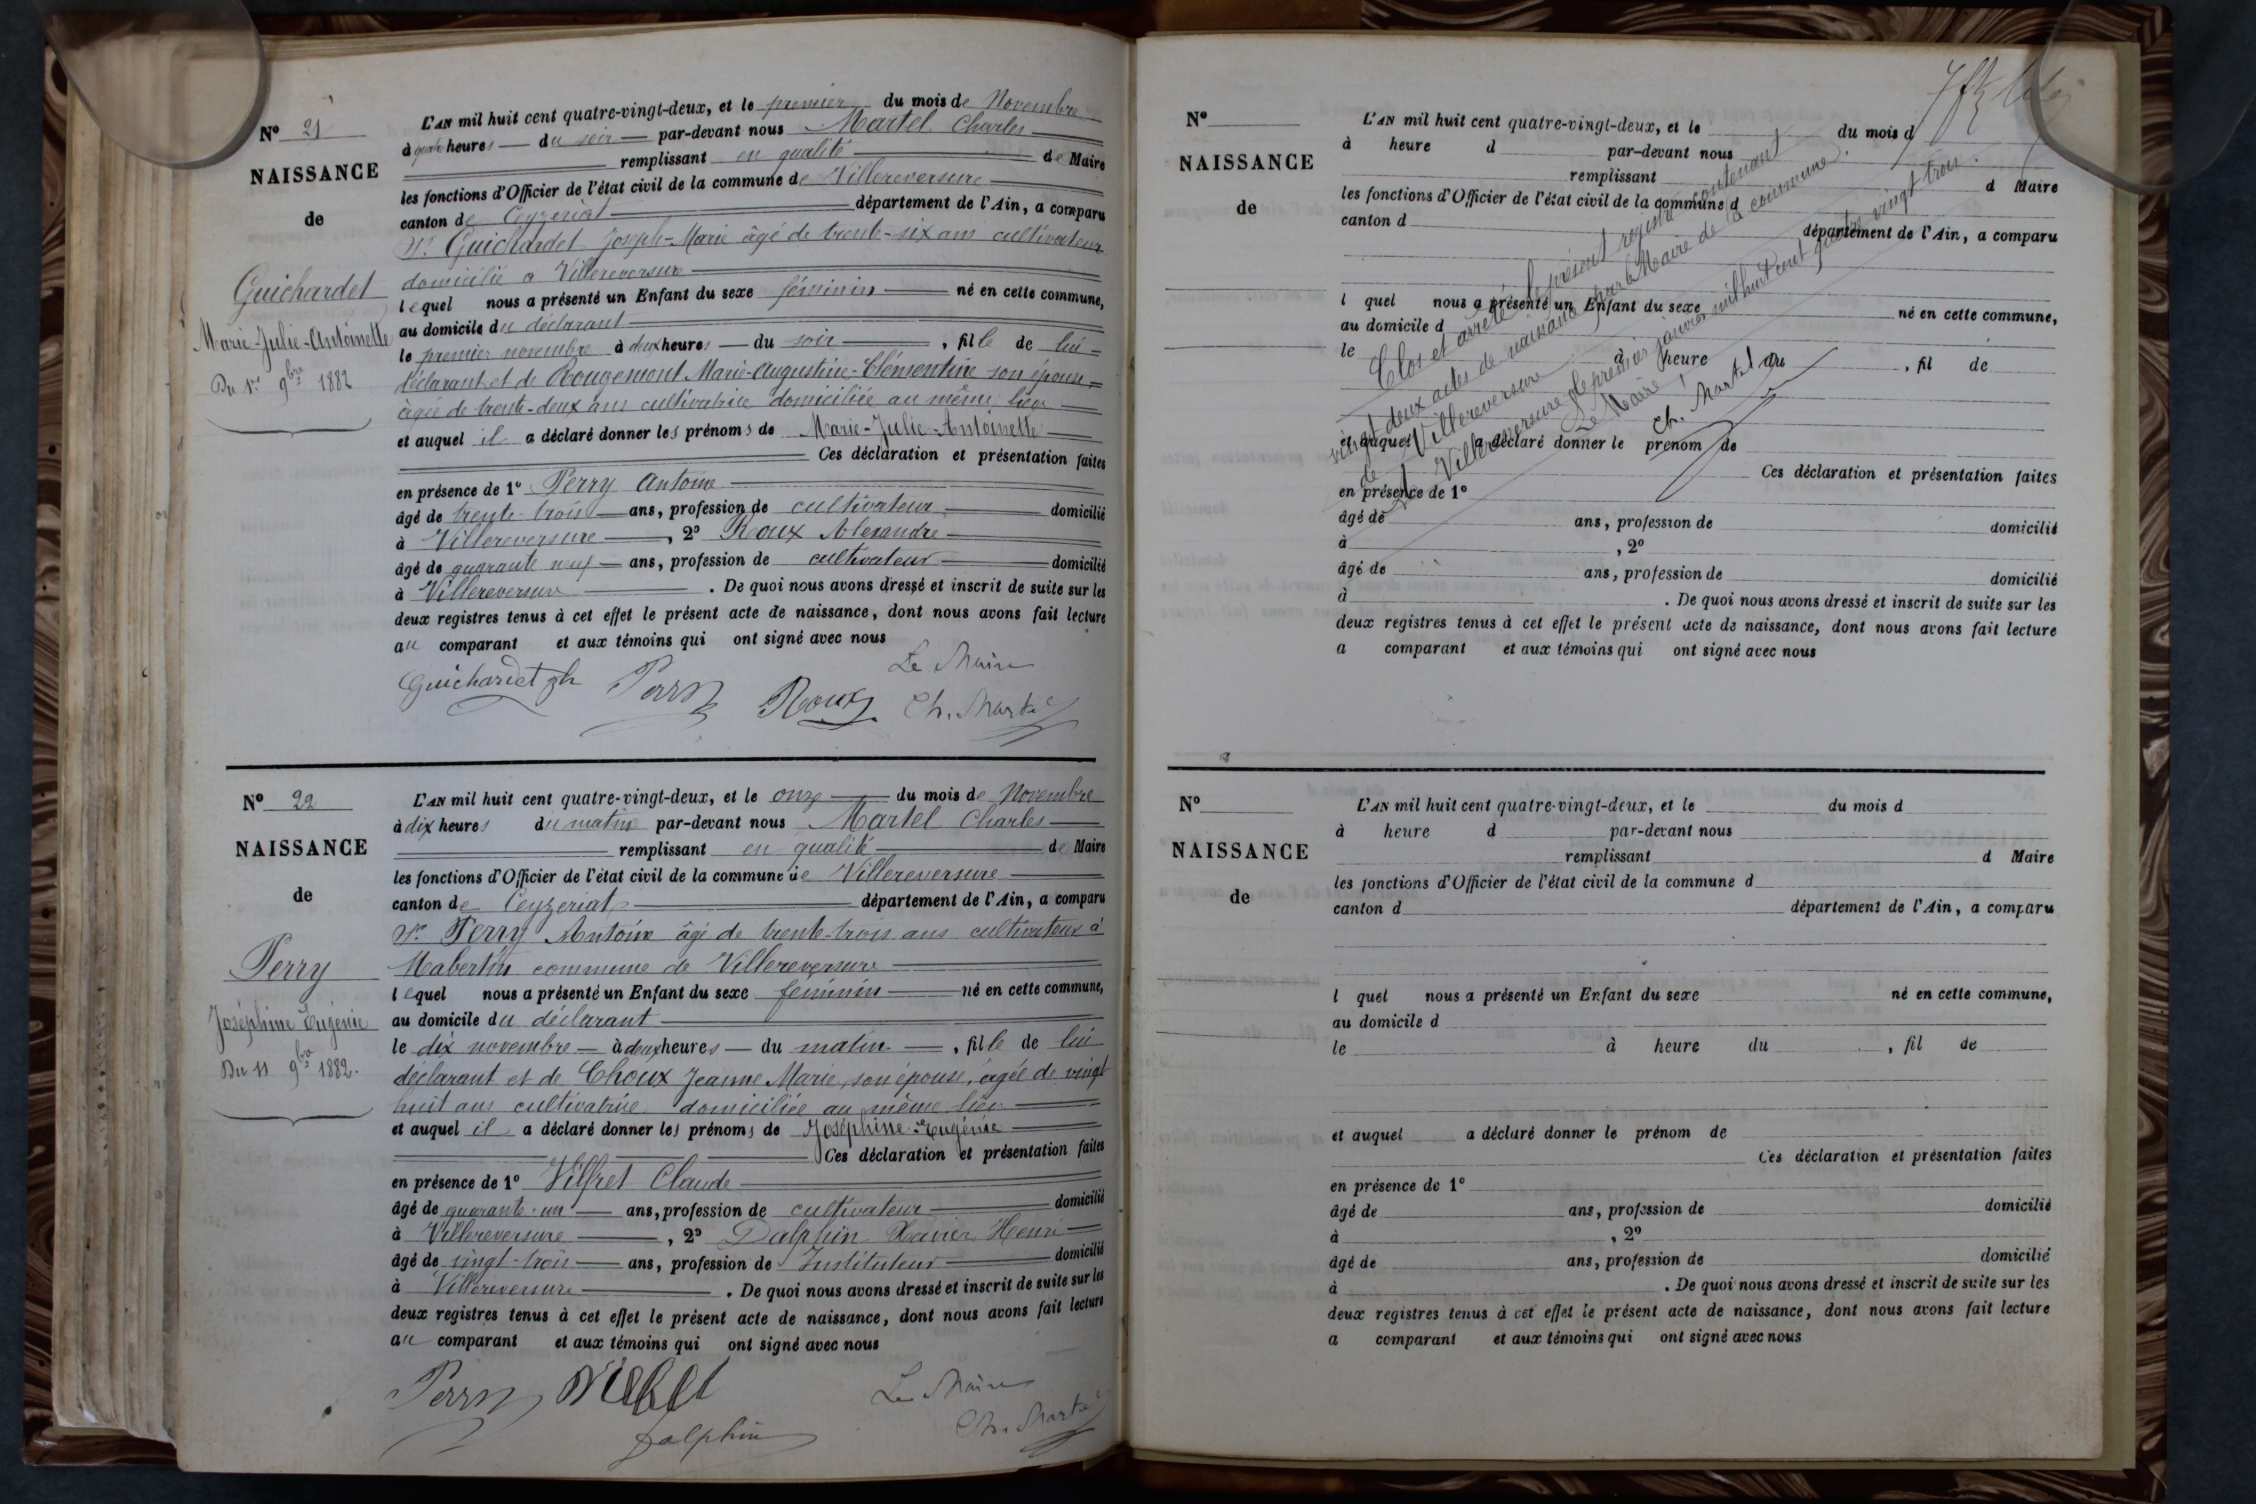 N° 21
NAISSANCE
de
Guichardet
Marie-Julie-Antoinette
Du 1er 9bre 1882
L'AN mil huit cent quatre-vingt-deux, et le premier du mois de Novembre
à quatre heures du soir par-devant nous Martel Charles
remplissant en qualité de Maire
les fonctions d'Officier de l'état civil de la commune de Villereversure
canton de Ceyzeriat département de l'Ain, a comparu
Sr. Guichardet Joseph-Marie âgé de trente-six ans cultivateur
domicilié a Villereversure
lequel nous a présenté un Enfant du sexe féminin né en cette commune,
au domicile du déclarant
le premier novembre à deux heures du soir, fille de lui
déclarant et de Rougemont Marie-Augustine-Clémentine son épouse
âgée de trente-deux ans cultivatrice domiciliée au même lieu
et auquel il a déclaré donner les prénoms de Marie-Julie-Antoinette
Ces déclaration et présentation faites
en présence de 1° Perry Antoine
âgé de trente-trois ans, profession de cultivateur domicilié
à Villereversure, 2° Roux Alexandre
âgé de quarante neuf ans, profession de cultivateur domicilié
à Villereversure. De quoi nous avons dressé et inscrit de suite sur les
deux registres tenus à cet effet le présent acte de naissance, dont nous avons fait lecture
au comparant et aux témoins qui ont signé avec nous
Le Maire
Guichardet Perry Roux Ch. Martel
N° 22
NAISSANCE
de
Perry
Joséphine Eugénie
Du 11 9bre 1882.
L'AN mil huit cent quatre-vingt-deux, et le onze du mois de Novembre
à dix heures du matin par-devant nous Martel Charles
remplissant en qualité de Maire
les fonctions d'Officier de l'état civil de la commune de Villereversure
canton de Ceyzeriat département de l'Ain, a comparu
Sr. Perry Antoine âgé de trente-trois ans cultivateur à
Mabertin commune de Villereversure
lequel nous a présenté un Enfant du sexe féminin né en cette commune,
au domicile du déclarant
le dix novembre à deux heures du matin, fille de lui
déclarant et de Choux Jeanne Marie, son épouse, âgée de vingt
huit ans cultivatrice domiciliée au même lieu
et auquel il a déclaré donner les prénoms de Joséphine-Eugénie
Ces déclaration et présentation faites
en présence de 1° Vilfret Claude
âgé de quarante-un ans, profession de cultivateur domicilié
à Villereversure, 2° Dalphin Xavier Henri
âgé de vingt-trois ans, profession de Instituteur domicilié
à Villereversure. De quoi nous avons dressé et inscrit de suite sur les
deux registres tenus à cet effet le présent acte de naissance, dont nous avons fait lecture
au comparant et aux témoins qui ont signé avec nous
Perry Le Maire
Dalphin Ch. Martel
N°
NAISSANCE
de
L'AN mil huit cent quatre-vingt-deux, et le du mois d
à heure d par-devant nous
remplissant d Maire
les fonctions d'Officier de l'état civil de la commune d
canton d département de l'Ain, a comparu
l quel nous a présenté un Enfant du sexe né en cette commune,
au domicile d
le à heure du, fil de
et auquel a déclaré donner le prénom de
Ces déclaration et présentation faites
en présence de 1°
âgé de ans, profession de domicilié
à, 2°
âgé de ans, profession de domicilié
à. De quoi nous avons dressé et inscrit de suite sur les
deux registres tenus à cet effet le présent acte de naissance, dont nous avons fait lecture
a comparant et aux témoins qui ont signé avec nous
Clos et arrêté le présent registre contenant
vingt deux actes de naissance par le Maire de la commune
de Villereversure
A Villereversure le premier janvier mil huit cent quatre vingt trois.
Le Maire
Ch. Martel
N°
NAISSANCE
de
L'AN mil huit cent quatre-vingt-deux, et le du mois d
à heure d par-devant nous
remplissant d Maire
les fonctions d'Officier de l'état civil de la commune d
canton d département de l'Ain, a comparu
l quel nous a présenté un Enfant du sexe né en cette commune,
au domicile d
le à heure du, fil de
et auquel a déclaré donner le prénom de
Ces déclaration et présentation faites
en présence de 1°
âgé de ans, profession de domicilié
à, 2°
âgé de ans, profession de domicilié
à. De quoi nous avons dressé et inscrit de suite sur les
deux registres tenus à cet effet le présent acte de naissance, dont nous avons fait lecture
a comparant et aux témoins qui ont signé avec nous